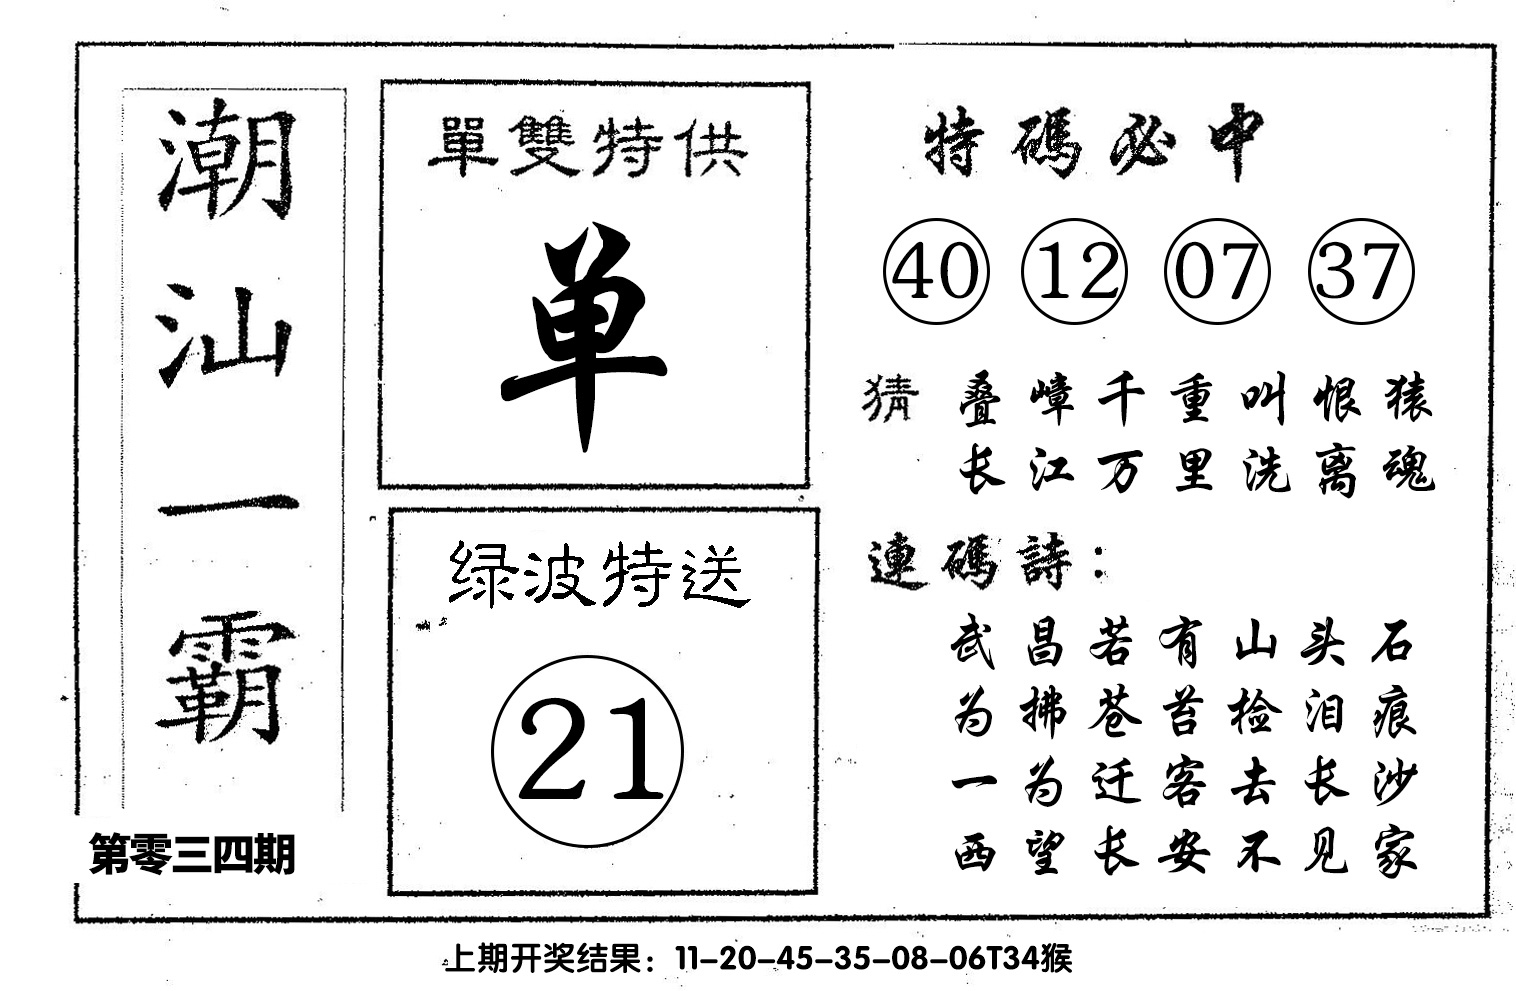 潮汕一霸
第零三四期
單雙特供
单
绿波特送
21
特碼必中
40 12 07 37
猜 叠嶂千重叫恨猿
长江万里洗离魂
連碼詩：
武昌若有山头石
为拂苍苔捡泪痕
一为迁客去长沙
西望长安不见家
上期开奖结果：11-20-45-35-08-06T34猴